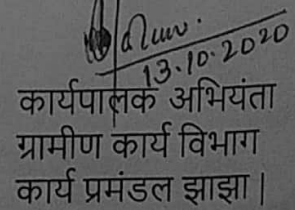 13.10.2020
कार्यपालक अभियंता
ग्रामीण कार्य विभाग
कार्य प्रमंडल झाझा |